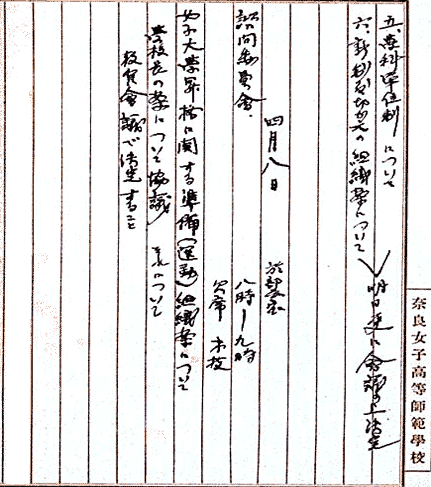 五、学科単位制について
六、新制度切替の組織案について
明日更に会議の上決定
四月八日
諮問委員会
八時ー九時
欠席 木枝
女子大学昇格に関する準備(運動)組織案について
学校長の案について協議
教官会議で決定すること
奈良女子高等師範學校